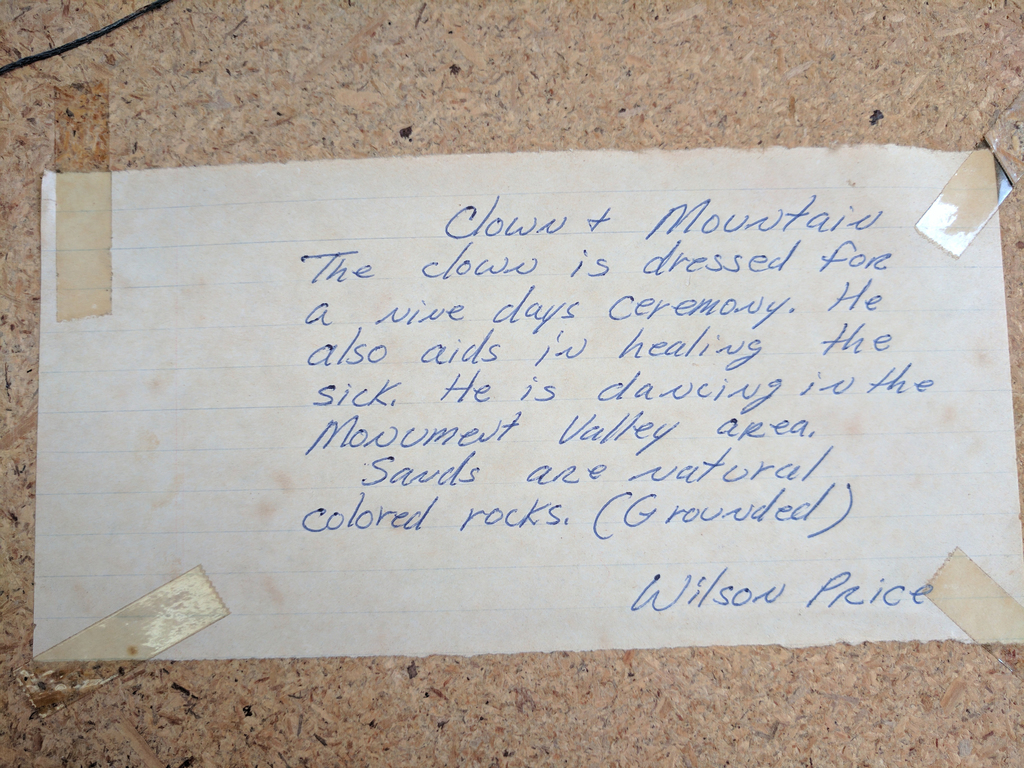 Clown + Mountain
The clown is dressed for
a nine days ceremony. He
also aids in healing the
sick. He is dancing in the
Monument Valley area.
Sands are natural
colored rocks. (Grounded)
Wilson Price